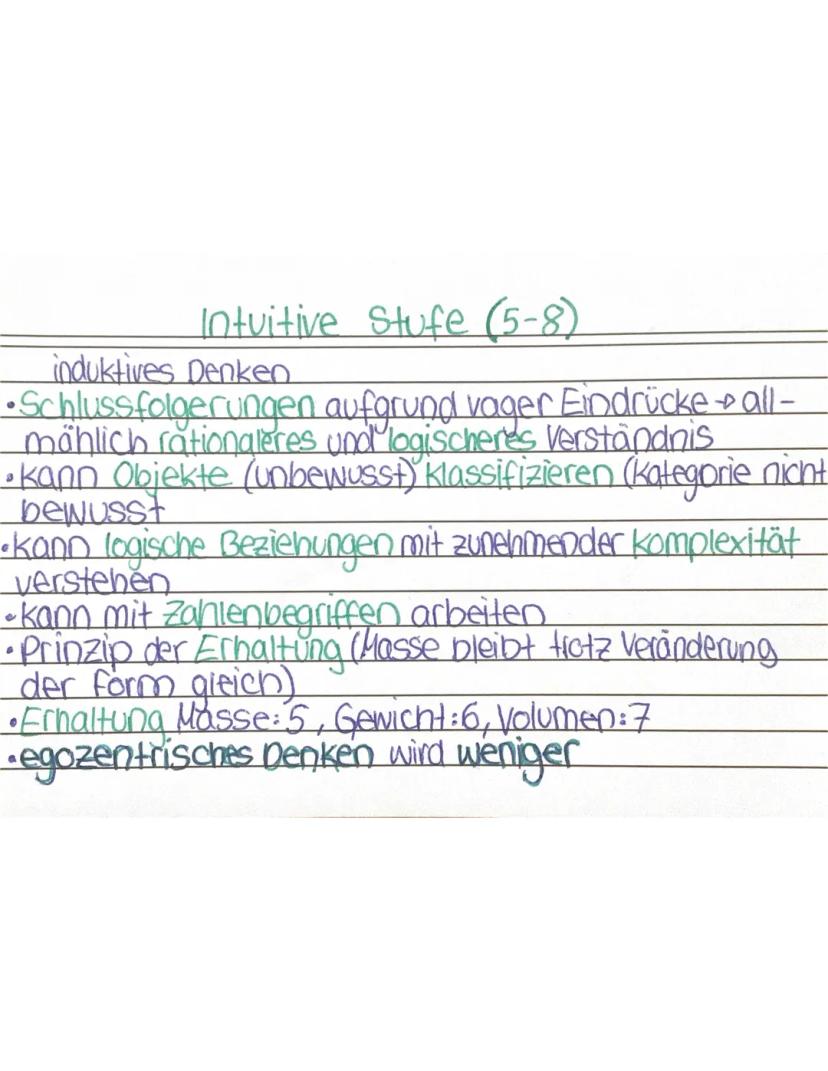 Intuitive Stufe (5-8)
induktives Denken
• Schlussfolgerungen aufgrund vager Eindrücke → all-
mählich rationaleres und logischeres Verständnis
• kann Objekte (unbewusst) klassifizieren (Kategorie nicht
bewusst
• kann logische Beziehungen mit zunehmender Komplexität
verstehen
• kann mit Zahlenbegriffen arbeiten
• Prinzip der Erhaltung (Masse bleibt trotz Veränderung
der Form gleich)
• Erhaltung Masse: 5, Gewicht: 6, Volumen: 7
• egozentrisches Denken wird weniger